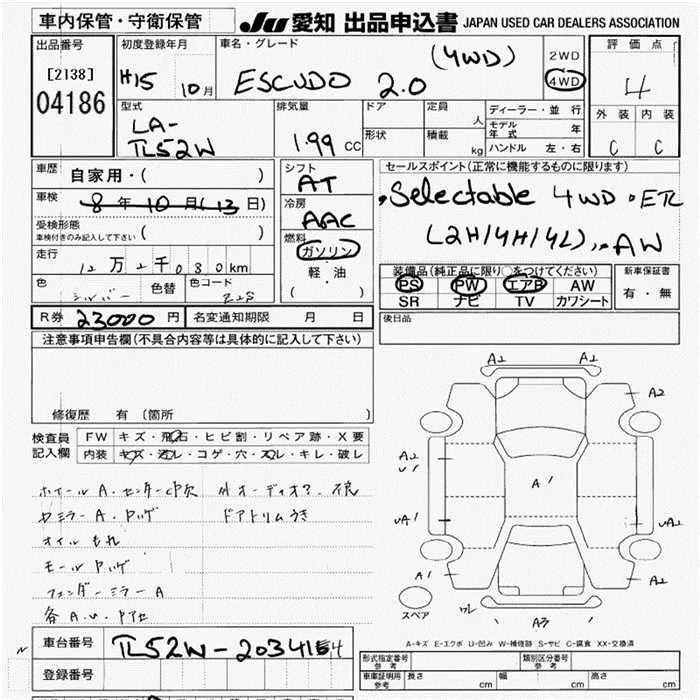 車内保管・守衛保管
JU 愛知 出品申込書 JAPAN USED CAR DEALERS ASSOCIATION
出品番号
[2138]
04186
初度登録年月
H15 10月
車名・グレード
ESCUDO 2.0 (4WD)
2WD
4WD
評価点
4
外装 内装
C C
型式
LA-
TL52W
排気量
1.99 CC
ドア
形状
定員 人
積載 kg
ディーラー・並行
モデル年式 年
ハンドル 左・右
車歴
自家用・( )
車検
8年10月(13日)
受検形態
車検付きのみ記入して下さい ( )
走行
12万2千080km
色 シルバー 色替 色コード Z2S
シフト
AT
冷房
AAC
燃料
ガソリン
軽・油
( )
セールスポイント(正常に機能するものに限ります)
・Selectable 4WD・ETC
(2H/4H/4L)・AW
装備品(純正品に限り○をつけてください)
PS PW エアB AW
SR ナビ TV カワシート
新車保証書
有・無
R券 23000円 名変通知期限 月 日
後日品
注意事項申告欄(不具合内容等は具体的に記入して下さい)
修復歴 有(箇所 )
検査員
記入欄
FW キズ・飛石・ヒビ割・リペア跡・X要
内装 キズ・汚レ・コゲ・穴・スレ・キレ・破レ
ホイールA・センターC欠 外オーディオ? 不良
ドアミラーA・Pハゲ ドアトリムうき
オイルもれ
モールPハゲ
フェンダーミラーA
各A.U.Pアセ
A2 A2
A2
A2
U1
A1
UA1
UA2
A1
A2
スペア
ワレ
A3
A-キズ E-エクボ U-凹み W-補修跡 S-サビ C-腐食 XX-交換済
車台番号 TL52W-2034154
登録番号
形式指定番号
参考
類別区分番号
参考
車庫証明用
参考
長さ cm 幅 cm 高さ cm